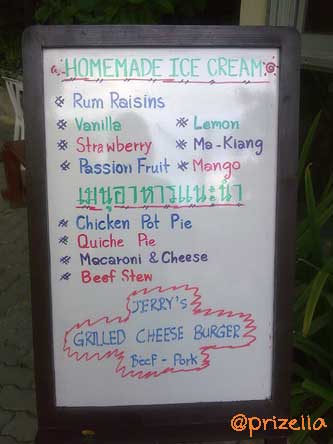 HOMEMADE ICE CREAM
Rum Raisins
Vanilla
Lemon
Strawberry
Ma-Kiang
Passion Fruit
Mango
เมนูอาหารแนะนำ
Chicken Pot Pie
Quiche Pie
Macaroni & Cheese
Beef Stew
JERRY'S
GRILLED CHEESE BURGER
Beef - Pork
@prizella